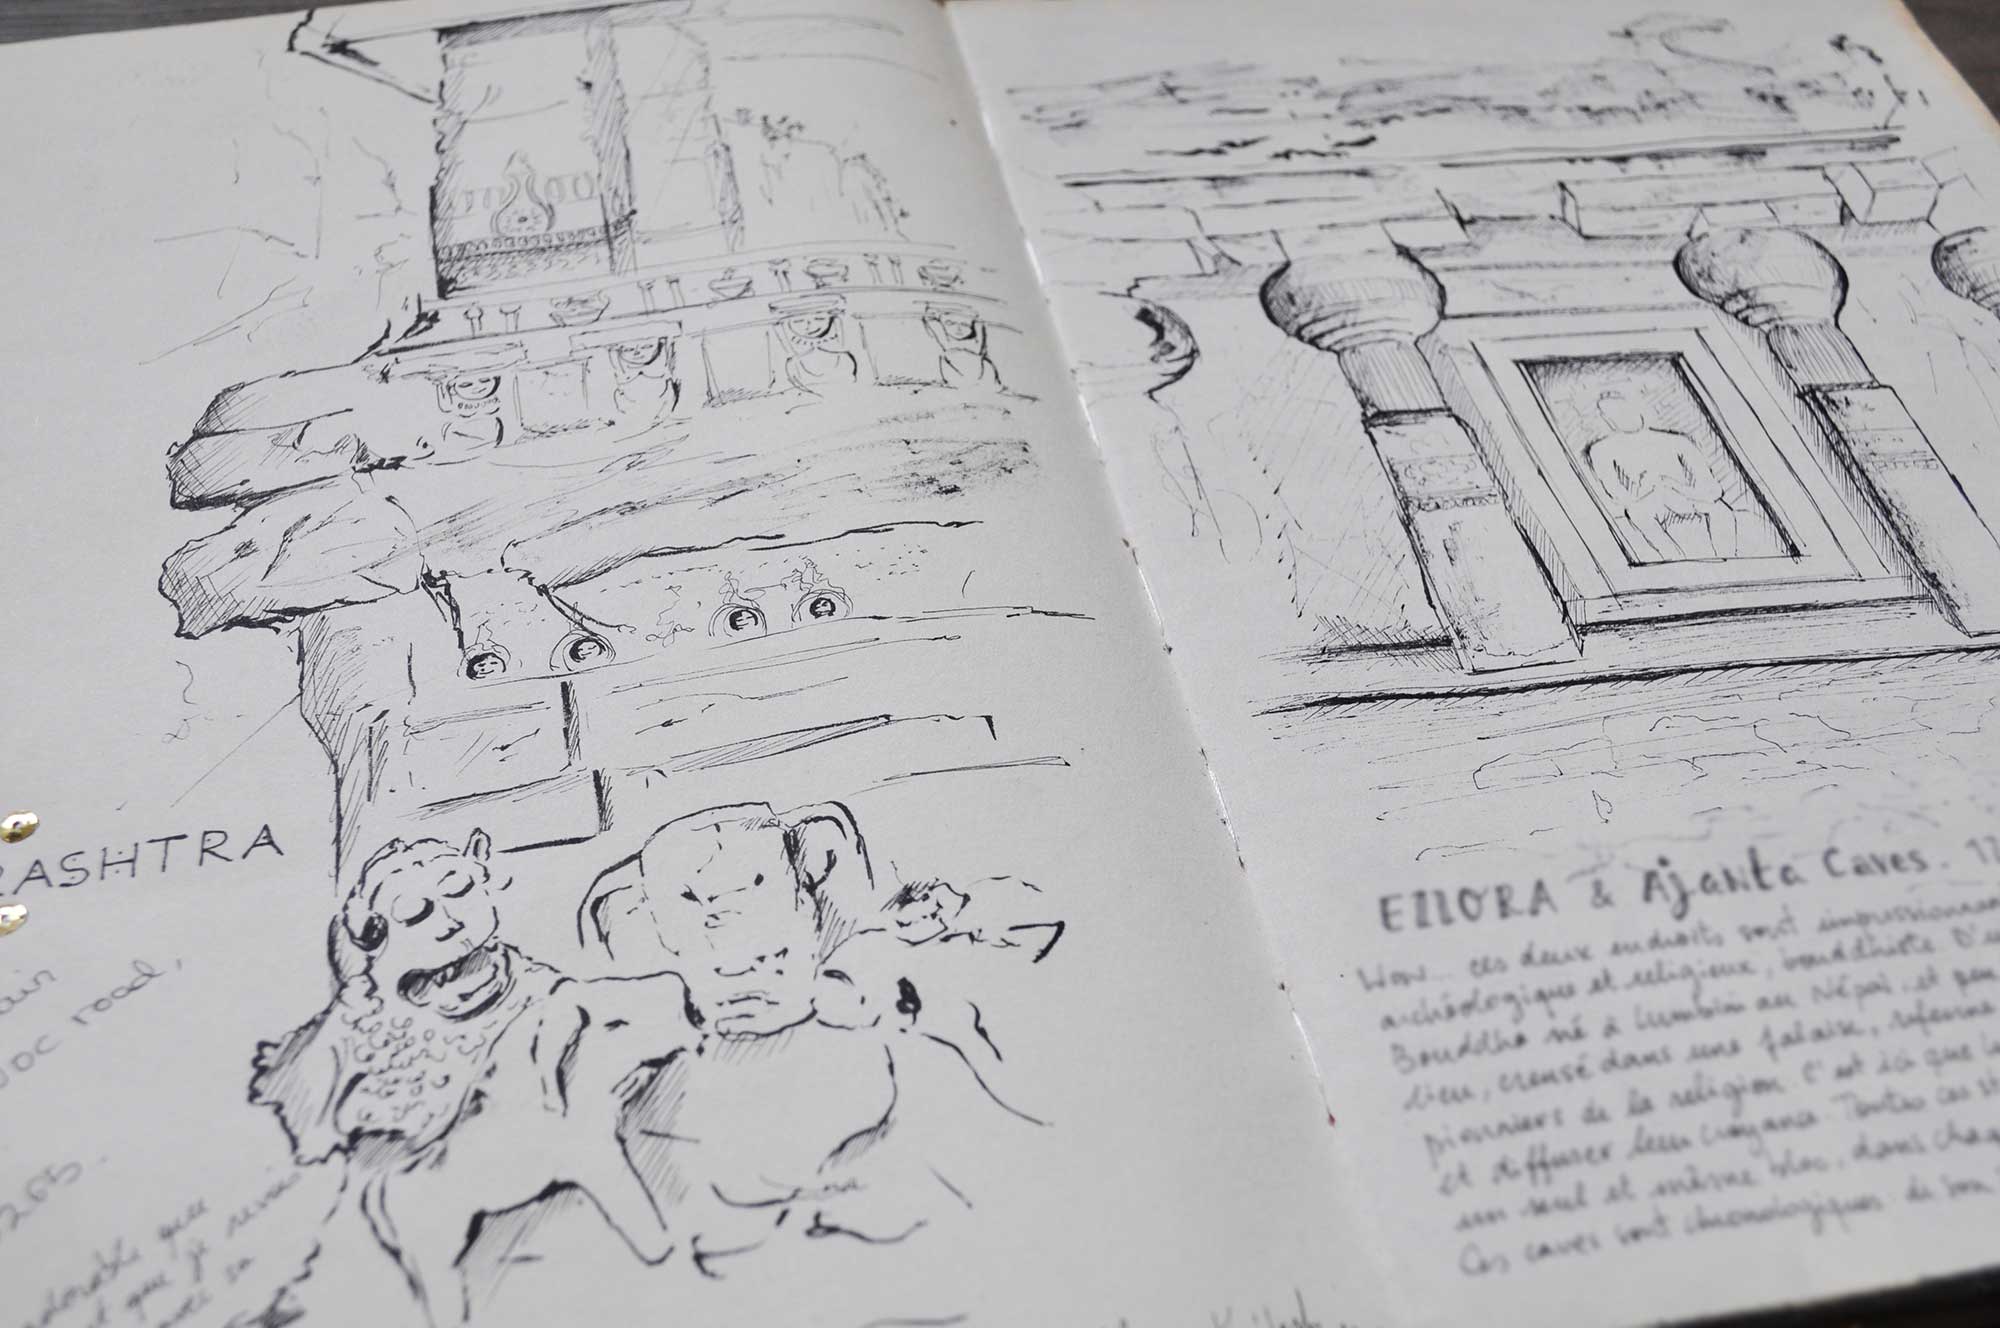 RASHTRA
road,
adorable que
et que je revois
avec sa
ELLORA & Ajanta Caves. 17
Wow... ces deux endroits sont impressionnan
archéologique et religieux, bouddhiste. D'u
Bouddha né à Lumbini au Népal, et peu
lieu, creusé dans une falaise, referme
pionniers de la religion. C'est ici que le
et diffuser leur croyance. Toutes ces st
un seul et même bloc, dans chaq
Ces caves sont chronologiques. de son